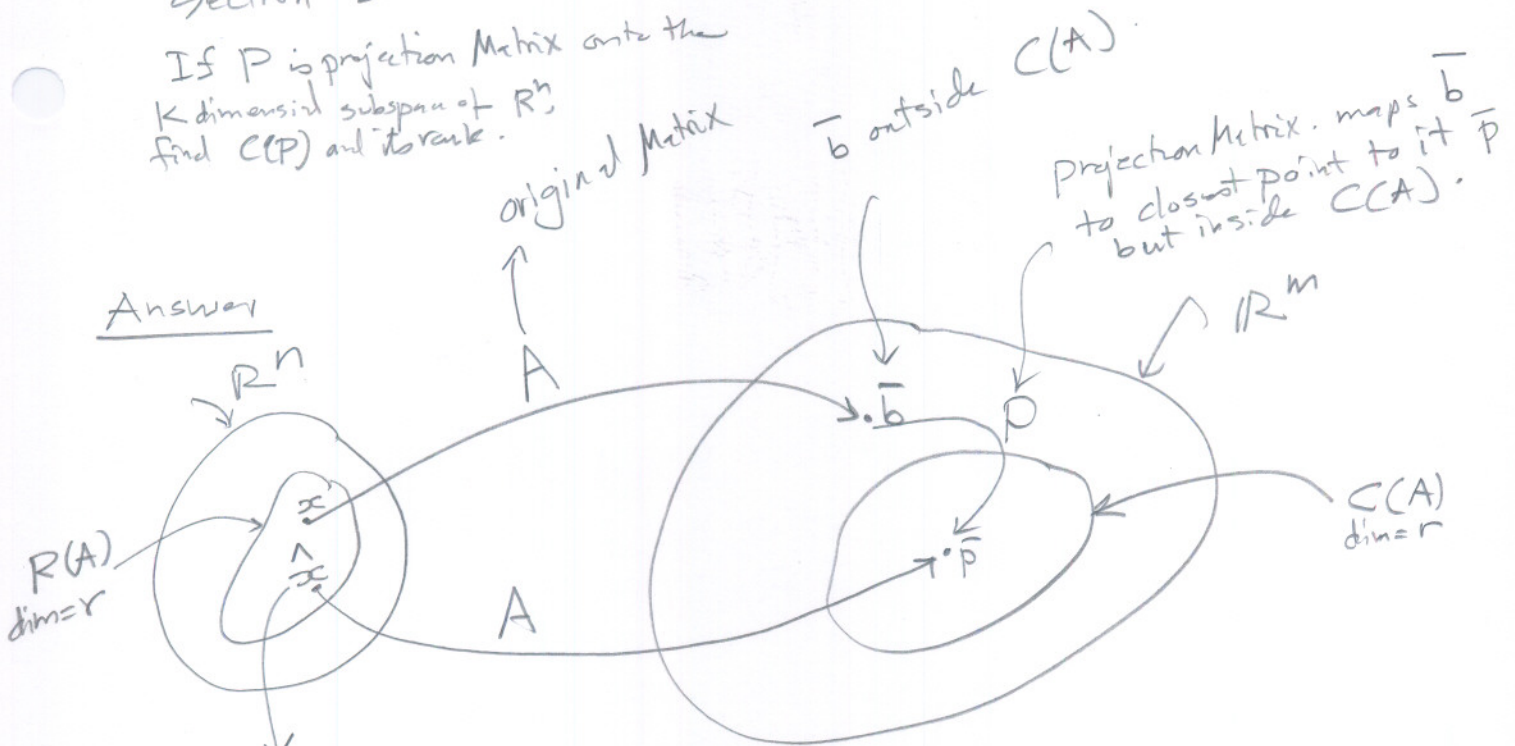 Section
If P is projection Matrix onto the
K dimensial subspace of Rⁿ,
find C(P) and its rank.
original Matrix
b̅ outside C(A).
projection Matrix. maps b̅
to closest point to it p̅
but inside C(A).
Answer
Rⁿ
A
b̅
P
ℝᵐ
x
C(A)
dim=r
R(A)
dim=r
x̂
p̅
A